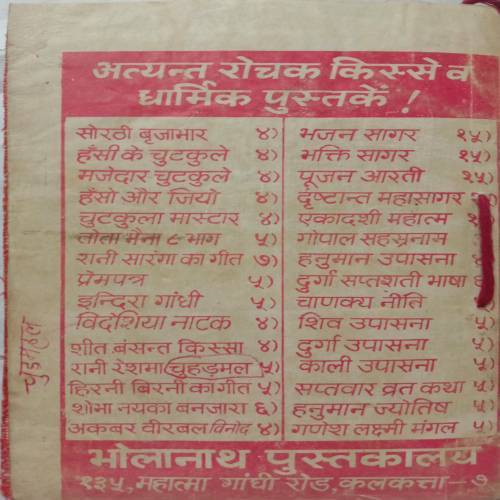 अत्यन्त रोचक किस्से व
धार्मिक पुस्तकें !
सोरठी बृजाभार ४)
हँसी के चुटकुले ४)
मजेदार चुटकुले ४)
हँसो और जियो ४)
चुटकुला मास्टार ४)
तोता मैना ८ भाग ५)
रानी सारंगा का गीत ७)
प्रेमपत्र ५)
इन्दिरा गांधी ५)
विदेशिया नाटक ४)
शीत बंसन्त किस्सा ४)
रानी रेशमा चुहड़मल ५)
हिरनी बिरनी का गीत ५)
शोभा नयका बनजारा ६)
अकबर वीरबल विनोद ४)
भजन सागर १५)
भक्ति सागर १५)
पूजन आरती १५)
दृष्टान्त महासागर
एकादशी महात्म
गोपाल सहस्रनाम
हनुमान उपासना
दुर्गा सप्तशती भाषा
चाणक्य नीति
शिव उपासना ५)
दुर्गा उपासना ५)
काली उपासना ५)
सप्तवार व्रत कथा ५)
हनुमान ज्योतिष ५)
गणेश लक्ष्मी मंगल ५)
भोलानाथ पुस्तकालय
१३५, महात्मा गांधी रोड, कलकत्ता-७